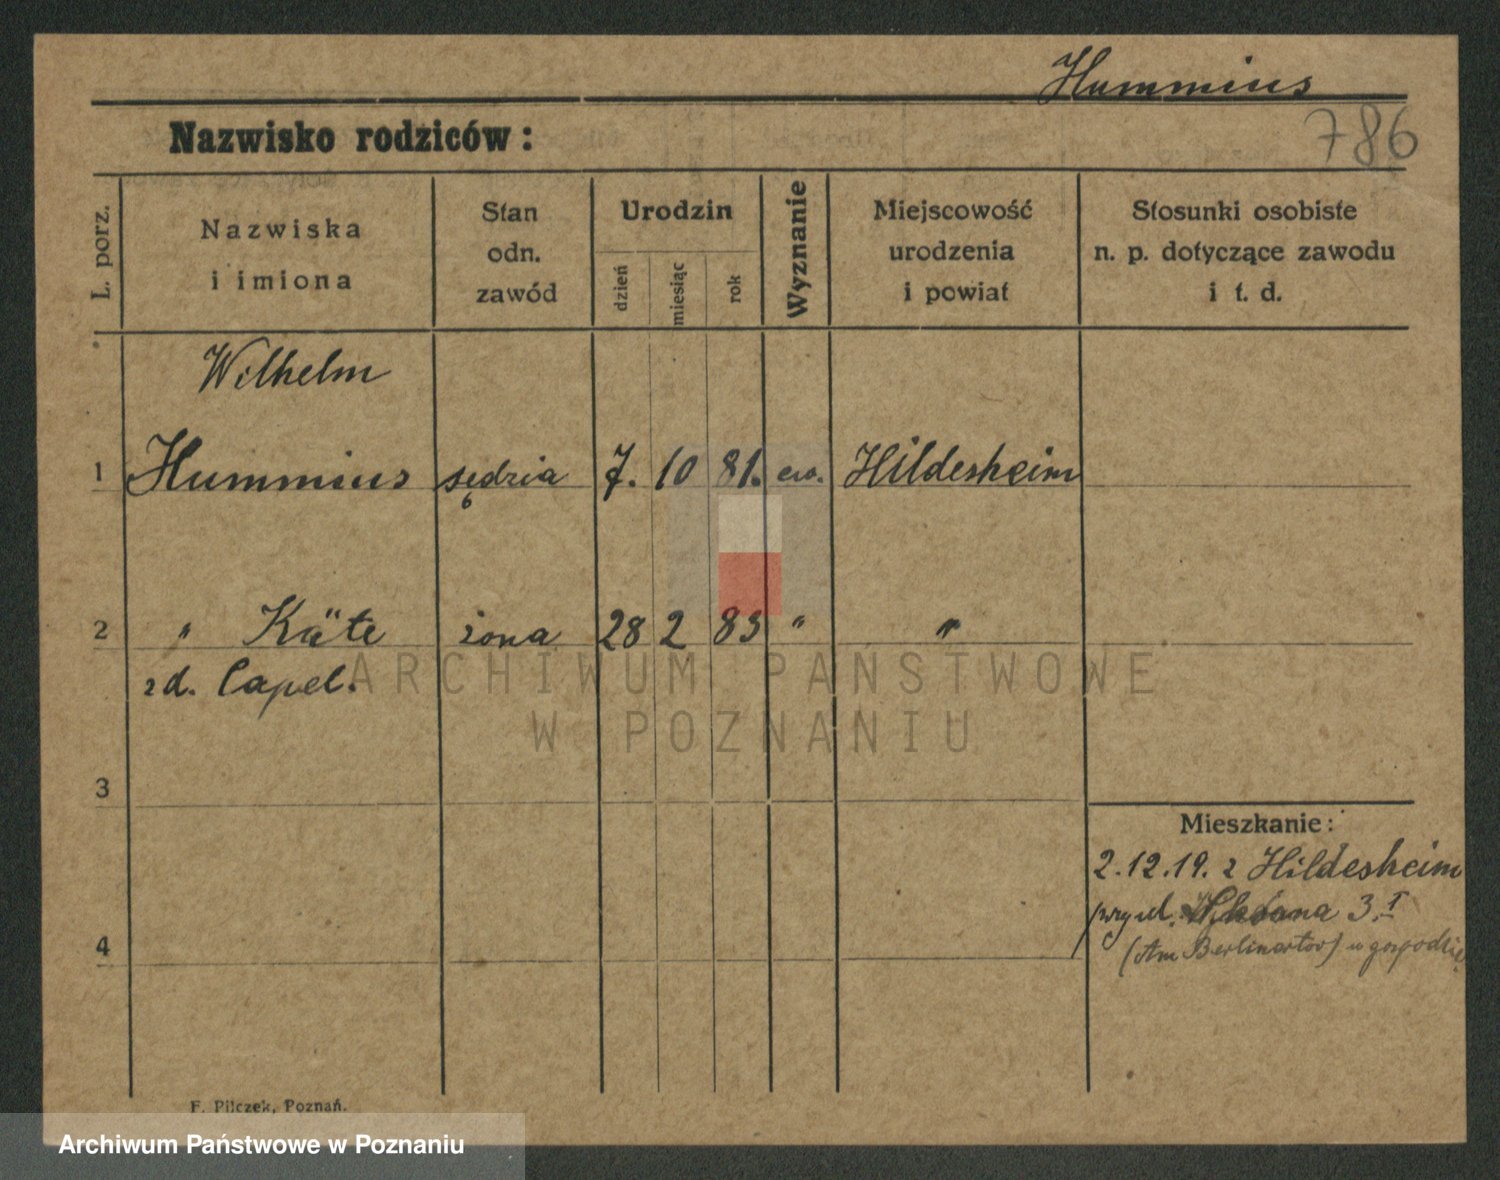 Hummius
786
Nazwisko rodziców:
L. porz.
Nazwiska
i imiona
Stan
odn.
zawód
Urodzin
dzień
miesiąc
rok
Wyznanie
Miejscowość
urodzenia
i powiat
Stosunki osobiste
n. p. dotyczące zawodu
i t. d.
Wilhelm
1 Hummius sędzia 7. 10 81. ew. Hildesheim
2 " Käte żona 28 2 83 " "
zd. Capel.
3
4
Mieszkanie:
2.12.19. z Hildesheim
przy ul. 3.I
(Am Berlinertor) u
F. Pilczek, Poznań.
ARCHIWUM PAŃSTWOWE
W POZNANIU
Archiwum Państwowe w Poznaniu